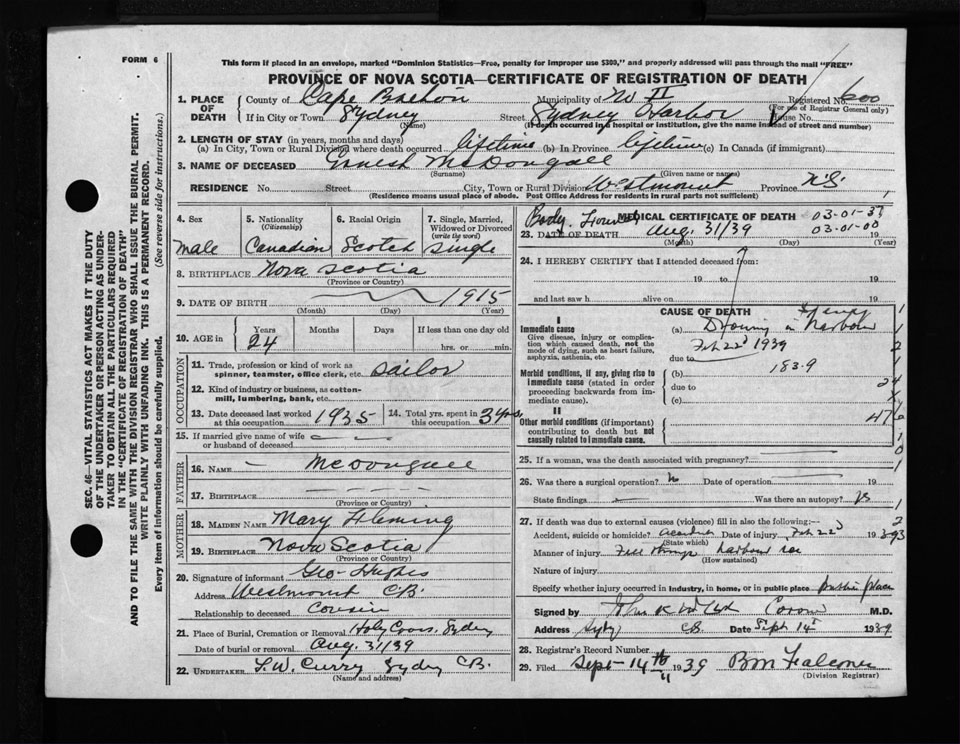 FORM 6
This form if placed in an envelope, marked "Dominion Statistics—Free, penalty for improper use $300," and properly addressed will pass through the mail "FREE"
PROVINCE OF NOVA SCOTIA—CERTIFICATE OF REGISTRATION OF DEATH
1. PLACE OF DEATH County of Cape Breton Municipality of No II Registered No. 600
(For use of Registrar General only)
If in City or Town Sydney Street Sydney Harbor House No.
(Name) (If death occurred in a hospital or institution, give the name instead of street and number)
2. LENGTH OF STAY (in years, months and days)
(a) In City, Town or Rural Division where death occurred lifetime (b) In Province lifetime (c) In Canada (if immigrant)
3. NAME OF DECEASED Ernest McDougall
(Surname) (Given name or names)
RESIDENCE No. Street City, Town or Rural Division Westmount Province N.S.
(Residence means usual place of abode. Post Office Address for residents in rural parts not sufficient)
4. Sex male
5. Nationality (Citizenship) Canadian
6. Racial Origin Scotch
7. Single, Married, Widowed or Divorced (write the word) single
8. BIRTHPLACE Nova Scotia
(Province or Country)
9. DATE OF BIRTH 1915
(Month) (Day) (Year)
10. AGE in Years 24 Months Days If less than one day old hrs. or min.
OCCUPATION
11. Trade, profession or kind of work as spinner, teamster, office clerk, etc. sailor
12. Kind of industry or business, as cotton-mill, lumbering, bank, etc.
13. Date deceased last worked at this occupation 1935
14. Total yrs. spent in this occupation 3 yrs.
15. If married give name of wife or husband of deceased
FATHER
16. NAME McDougall
17. BIRTHPLACE
(Province or Country)
MOTHER
18. MAIDEN NAME Mary Fleming
19. BIRTHPLACE Nova Scotia
(Province or Country)
20. Signature of informant Geo Hughes
Address Westmount CB.
Relationship to deceased Cousin
21. Place of Burial, Cremation or Removal Holy Cross, Sydney
Date of burial or removal Aug. 31/39
22. UNDERTAKER F.W. Curry Sydney CB.
(Name and address)
MEDICAL CERTIFICATE OF DEATH
Body Found
03-01-37
03-01-00
23. DATE OF DEATH Aug. 31/39 19
(Month) (Day) (Year)
24. I HEREBY CERTIFY that I attended deceased from:
19 to 19
and last saw h alive on 19
CAUSE OF DEATH
I
Immediate cause
Give disease, injury or complication which caused death, not the mode of dying, such as heart failure, asphyxia, asthenia, etc.
(a) Drowning in harbour
Feb 22d 1939
due to
Morbid conditions, if any, giving rise to immediate cause (stated in order proceeding backwards from immediate cause).
(b) 183.9
due to
(c)
II
Other morbid conditions (if important) contributing to death but not causally related to immediate cause.
25. If a woman, was the death associated with pregnancy?
26. Was there a surgical operation? No Date of operation 19
State findings Was there an autopsy?
27. If death was due to external causes (violence) fill in also the following:—
Accident, suicide or homicide? accident Date of injury Feb 22d 1939
(State which)
Manner of injury Fell through harbour ice
(How sustained)
Nature of injury
Specify whether injury occurred in industry, in home, or in public place Public place
Signed by Coroner M.D.
Address Sydney CB. Date Sept 14th 1939
28. Registrar's Record Number
29. Filed Sept-14th 1939 BM Falconer
(Division Registrar)
SEC. 46—VITAL STATISTICS ACT MAKES IT THE DUTY OF THE UNDERTAKER OR PERSON ACTING AS UNDERTAKER TO OBTAIN ALL THE PARTICULARS REQUIRED IN THE "CERTIFICATE OF REGISTRATION OF DEATH" AND TO FILE THE SAME WITH THE DIVISION REGISTRAR WHO SHALL ISSUE THE BURIAL PERMIT.
WRITE PLAINLY WITH UNFADING INK. THIS IS A PERMANENT RECORD.
Every item of information should be carefully supplied. (See reverse side for instructions.)